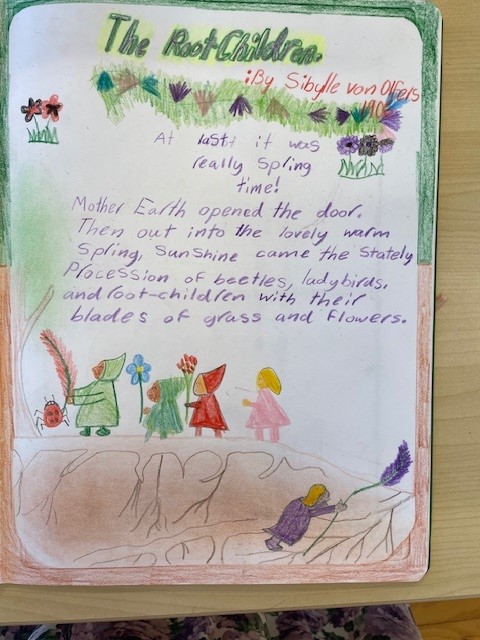 The Root Children.
:By Sibylle von Olfers
At last it was
really Spring
time!
Mother Earth opened the door.
Then out into the lovely warm
Spring, Sunshine came the Stately
Procession of beetles, ladybirds,
and root-children with their
blades of grass and flowers.